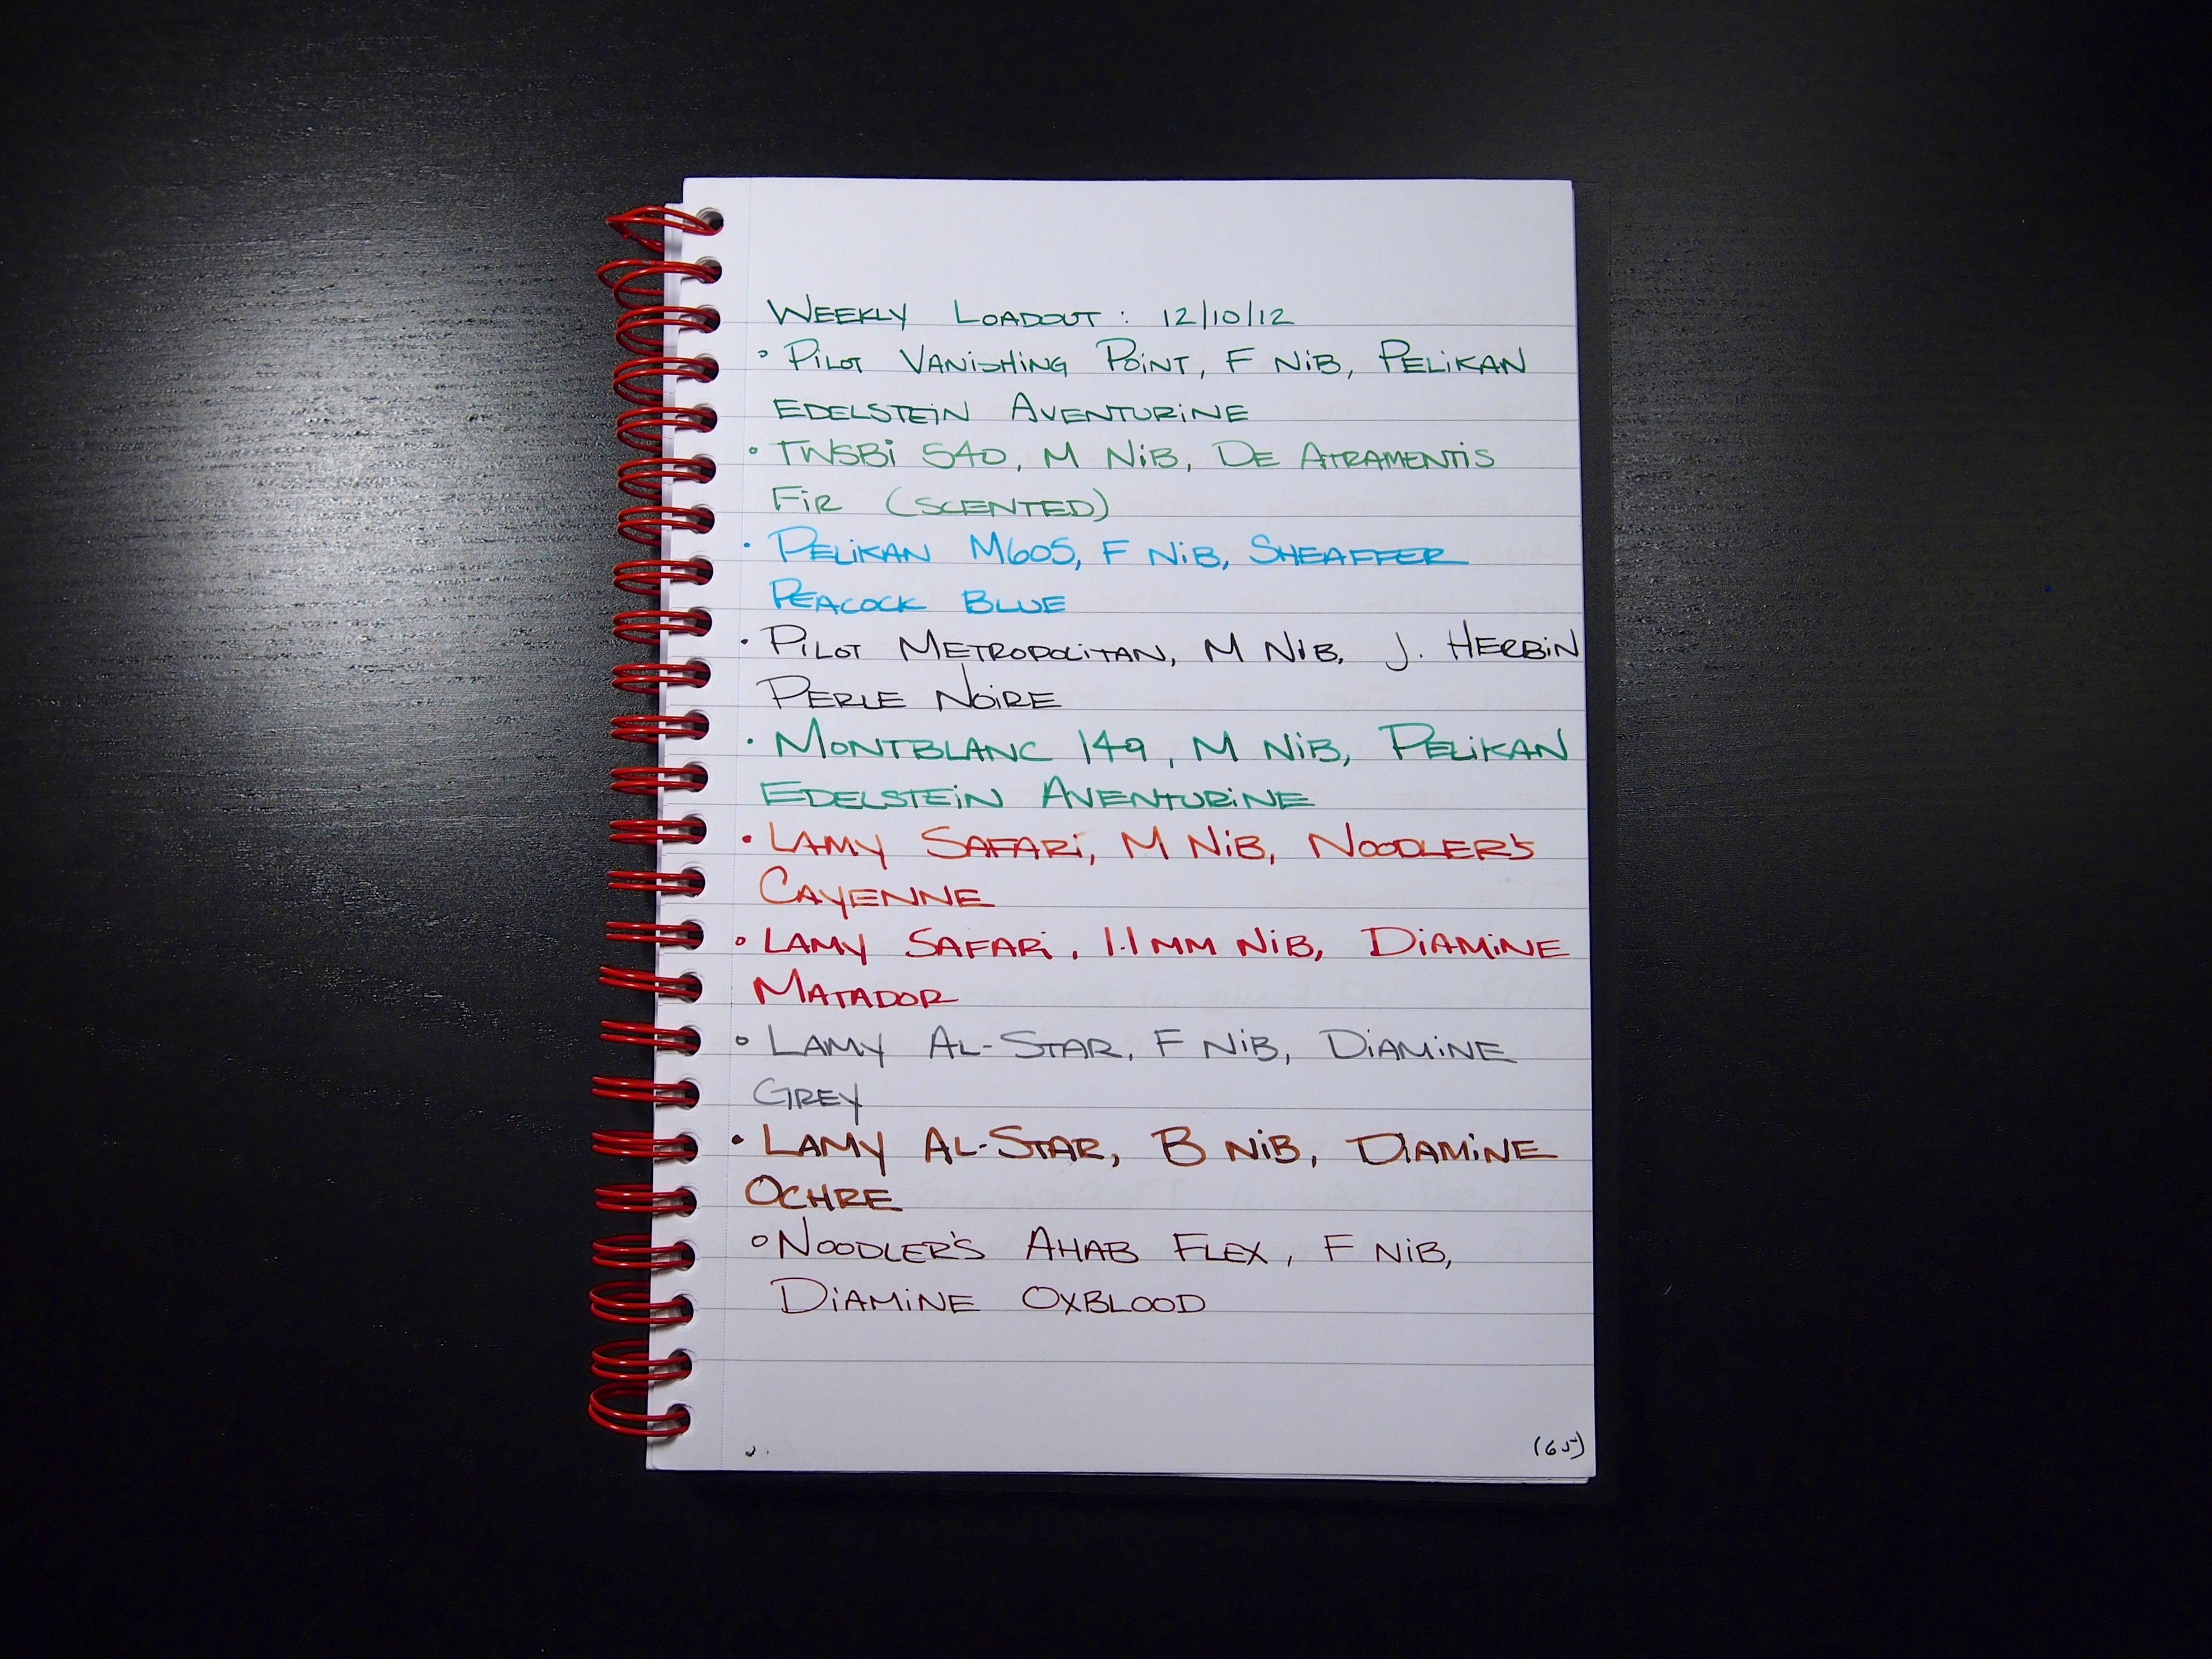 WEEKLY LOADOUT: 12/10/12
• PILOT VANISHING POINT, F NIB, PELIKAN
EDELSTEIN AVENTURINE
• TWSBI 540, M NIB, DE ATRAMENTIS
FIR (SCENTED)
• PELIKAN M605, F NIB, SHEAFFER
PEACOCK BLUE
• PILOT METROPOLITAN, M NIB, J. HERBIN
PERLE NOIRE
• MONTBLANC 149, M NIB, PELIKAN
EDELSTEIN AVENTURINE
• LAMY SAFARI, M NIB, NOODLER'S
CAYENNE
• LAMY SAFARI, 1.1MM NIB, DIAMINE
MATADOR
• LAMY AL-STAR, F NIB, DIAMINE
GREY
• LAMY AL-STAR, B NIB, DIAMINE
OCHRE
• NOODLER'S AHAB FLEX, F NIB,
DIAMINE OXBLOOD
(65)